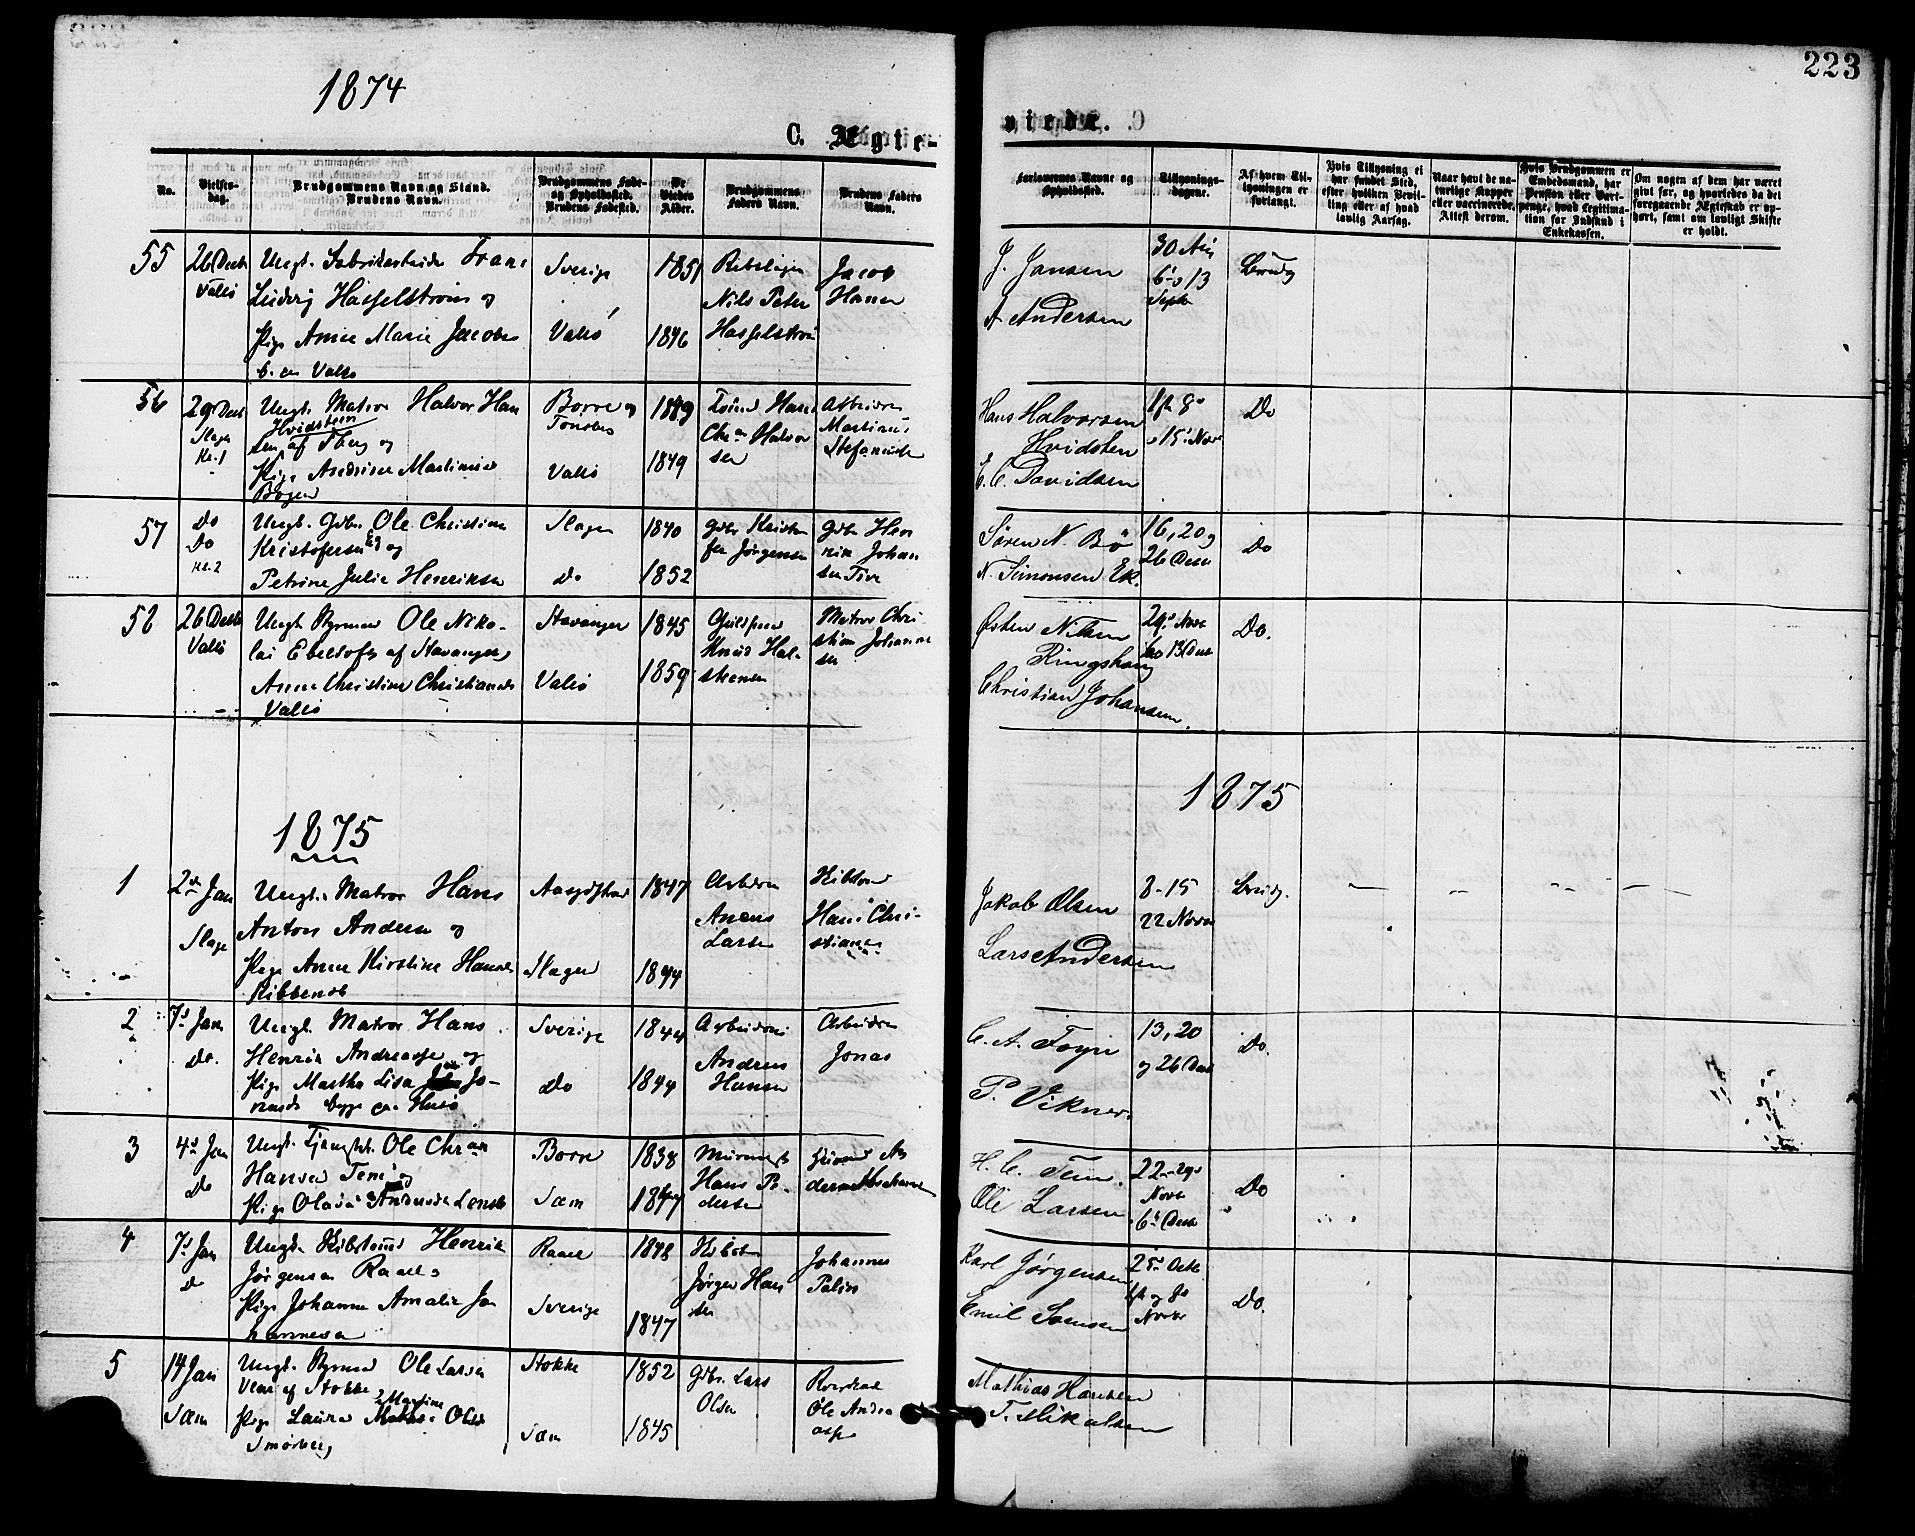 223
1874
C. Ægte-
viede.
No.
Vielses-
dag.
Brudgommens Navn og Stand.
Brudens Navn.
Brudgommens Føde-
og Opholdssted.
Brudens Fødested.
De
Viedes
Alder.
Brudgommens
Faders Navn.
Brudens Faders
Navn.
Forlovernes Navne og
Opholdssted.
Tillysnings-
dagene.
Af hvem Til-
lysningen er
forlangt.
Hvis Tillysning ei
har fundet Sted,
efter hvilken Bevil-
ling eller af hvad
lovlig Aarsag.
Naar havt de na-
turlige Kopper
eller vaccinerede,
Attest derom.
Hvis Brudgommen er
Embedsmand, har
Pension eller Vart-
penge, hvad Legitima-
tion for Indskud i
Enkekassen.
Om nogen af dem har været
givt før, og hvorledes da det
foregaaende Ægteskab er op-
hørt, samt om lovligt Skifte
er holdt.
55
26 Decb
Vallø
Ungk. Fabrikarbeider Frans
Ludvig Hasselstrøm og
Pige Anne Marie Jacobs
Vallø
Sverige
Vallø
1851
1846
Nils Peter
Hasselstrøm
Jacob
Hansen
J. Jansen
A Andersen
30 Aug
6 o 13
Septr
Brudg
56
29 Decb
Slagen
Kl. 1
Ungk. Matros Halvor Han
sen Hvidsteen af Tbrg og
Pige Andrine Martinius
Bogen
Borre og
Tønsbrg
Vallø
1849
1849
Halvor
sen
Arbeider
Martinus
Stefansen
Hans Halvorsen
Hvidsten
C. Davidsen
1st 8o
o 15 Novr
Do
57
Do
Do
Kl. 2
Ungk. Gbr. Ole Christian
Kristofersen Eg og
Petrine Julie Henriksen
Slagen
do
1840
1852
Gbr Kristof
fer Jørgensen
Gbr Hen
rik Johan
sen
Søren N. Bø
N. Simonsen Ek.
16, 20 og
26 Decbr
Do
58
26 Decb
Vallø
Ungk Styrmand Ole Niko-
lai Ebeltoft af Stavanger
Anne Christine Christians
Vallø
Stavanger
Vallø
1845
1859
Knud Hal-
Matros Chri-
stian Johanne
sen
Østen Nilsen
Ringshaug
Christian Johansen.
29 Novr
13 Decbr
Do.
1875
1875
1
2den Jan
Slagen
Ungk. Matros Hans
Anton Andersen og
Pige Anne Kirstine Hans
Ribbensb
Aasgdstrand
Slagen
1847
1844
Arbeider
Anders
Larsen
Skibstømd
Hans Chri-
stiansen
Jakob Olsen
Lars Andersen
8-15
22 Novbr
Brudg.
2
7d Jan
Do.
Ungk. Matros Hans
Henrik Andreassen og
Pige Martha Lisa Jo-
nasd Husø
Sverige
Do
1844
1844
Arbeider
Andreas
Hansen
Arbeider
Jonas
C. A. Foyn
P. Vikner.
13, 20
og 26 Decb
Do.
3
4d Jan
Do
Ungk. Ole Chrian
Hansen Tem og
Pige Andersdr Lensb
Borre
Sæm
1838
1847
Hans Pe-
dersen
H. C. Tem.
Ole Larsen
22 - 29
Novbr
6 Decbr
Do
4
7d Jan
Do
Ungk. Skibstømd Henrik
Jørgensen Raael og
Pige Johanne Amalie Jo
hannesen
Raael
Sverige
1848
1847
Skibst
Jørgen Han
sen
Johannes
Karl Jørgensen
Emil Svensen
25 Octb
1st og 8o
Novbr
Do.
5
14 Jan
Sæm
Ungk. Styrmd Ole Larsen
Vear af Stokke
Pige Laura Martine Olsd
Smørberg
Stokke
Sæm
1852
1845
Gbr. Lars
Olsen
Ole Andre
assen
Mathias Hansen
T. Mikalsen